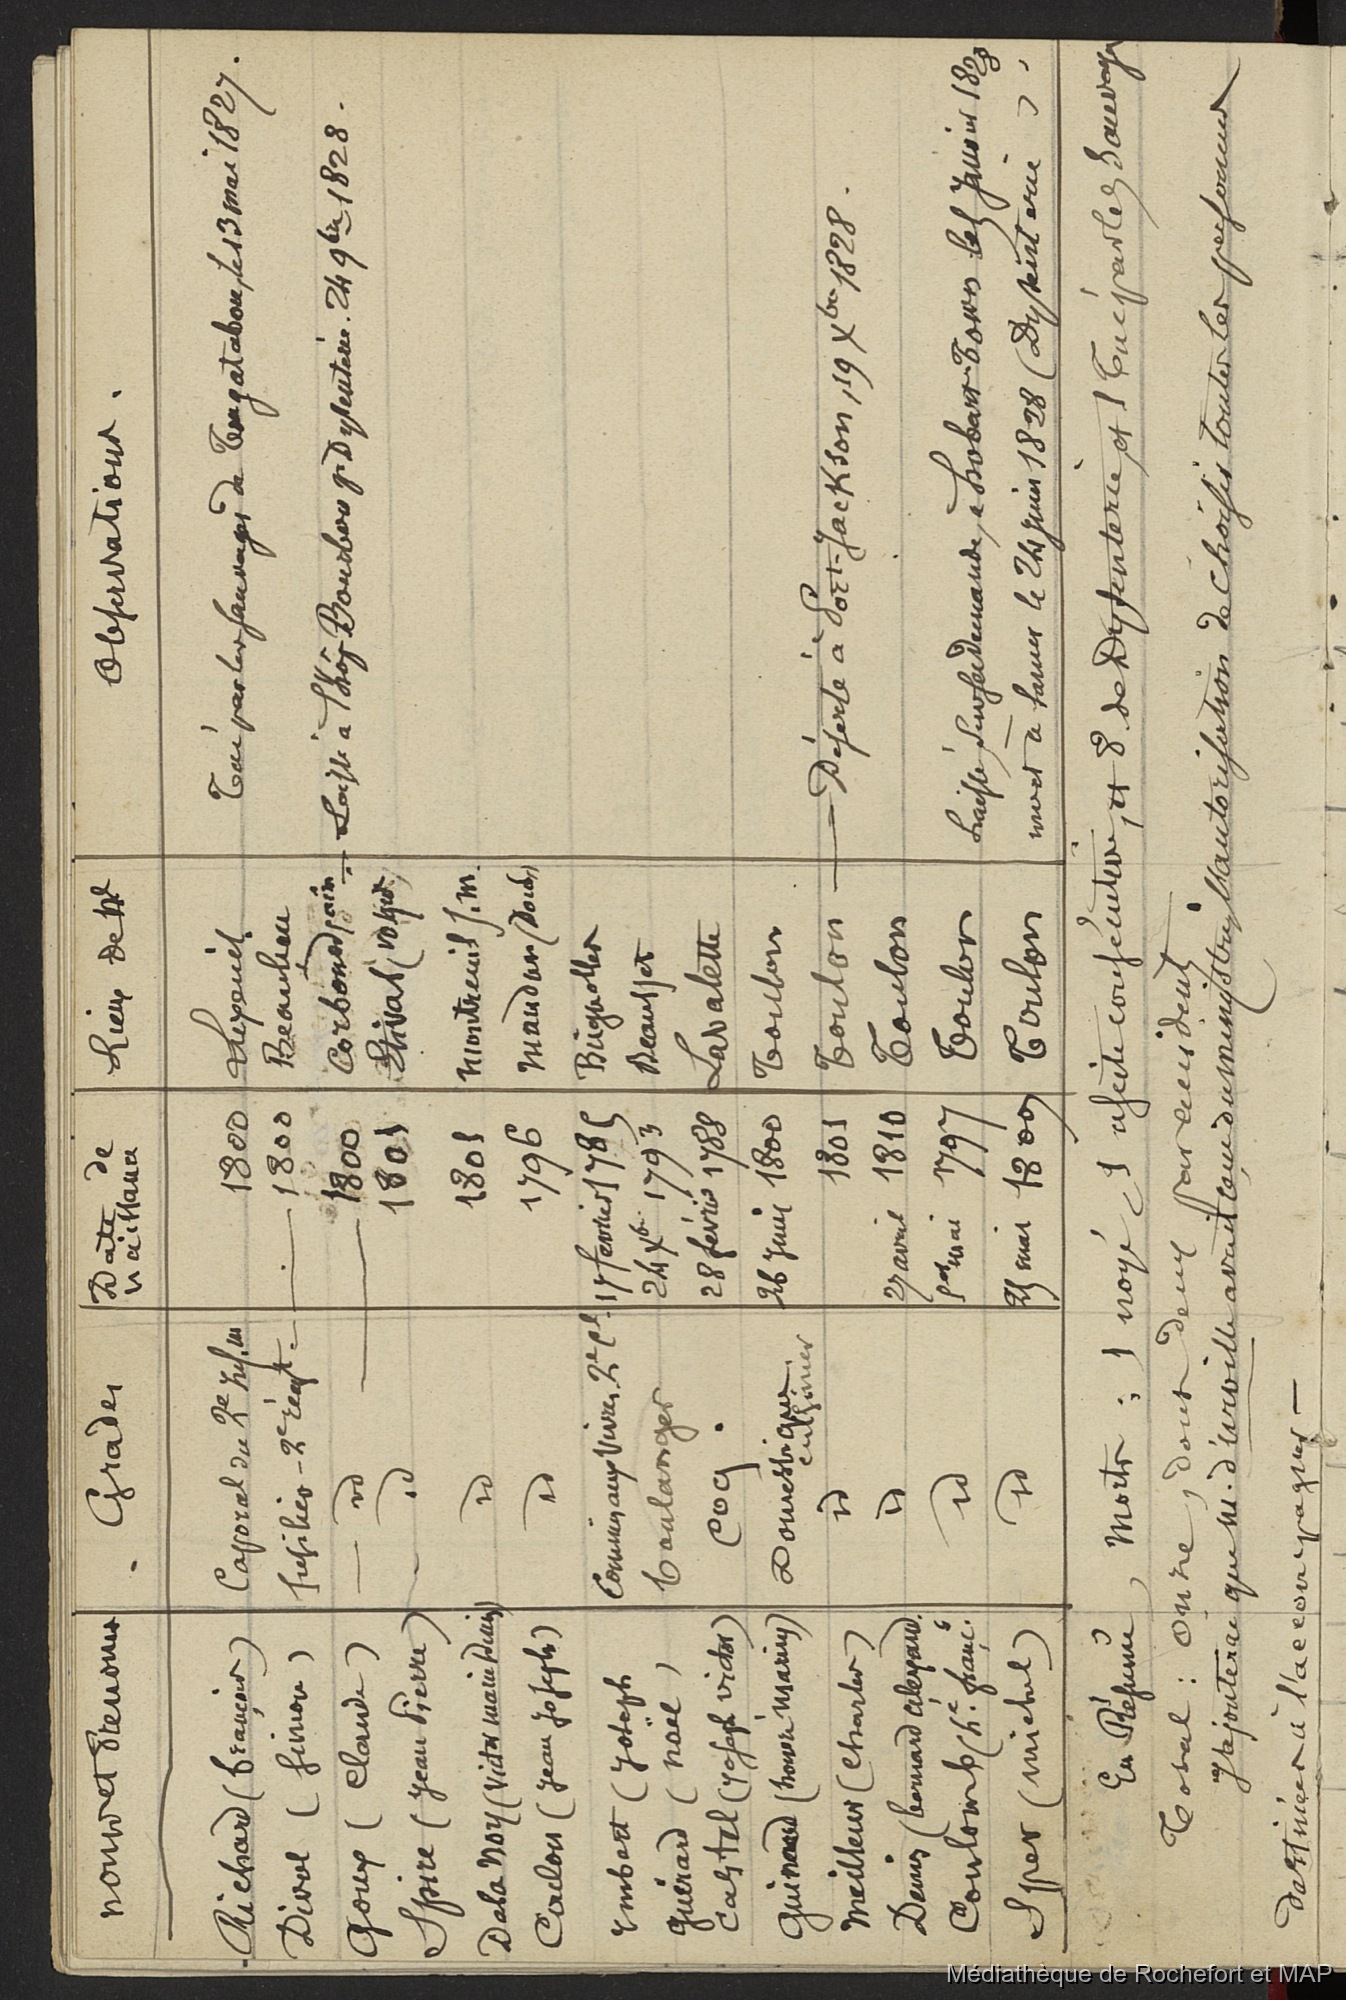 noms et Prénoms . Grades Date de naissance Lieux de Nce Observations .
Richard (françois) Caporal du 2e Inf. m 1800 Tué par les sauvages de Tongatabou, le 13 mai 1827.
Divol (simon) fusilier - 2e régt. 1800 Beaulieu
Goux (Claude) — id — 1800 Corbonod (ain) — Laissé à l'hôp. Bourbon pr Dyssenterie. 24 9bre 1828.
Spire (jean Pierre) id 1801
Delanoy (Victor marie Denis) id 1801 montreuil s. m.
Coulon (jean joseph) id 1796 mandeure (Doubs)
ymbert (joseph) Commis aux Vivres 2e cl. 17 fevrier 1785 Brignolles
guérard (noël) boulanger 24 Xbre 1793 Beausset
Castel (joseph victor) Coq . 28 février 1788 Lavalette
guinard (honoré maxim) Domestique cuisinier 26 juin 1800 Toulon
meilheur (Charles) id 1801 Toulon — Déserté à Port-jackson, 19 Xbre 1828.
Denis (bernard alexand.) id 27 avril 1810 Toulon
Coulomb (he. franç.) id per mai 1797 Toulon Laissé, sur sa demande, à hobart-Town les janvier 1828
Sper (michel) id 25 mai 1800 Toulon mort à bord le 24 juin 1828 (Dyssenterie)
En Résumé, morts : 1 noyé, 1 et 8 de Dyssenterie, et 1 Tué par les Sauvages
Total : onze, dont deux par accident
J'ajouterai que M. d'urville avait reçu du ministre, l'autorisation de choisir toutes les personnes
destinées à l'accompagner —
Médiathèque de Rochefort et MAP